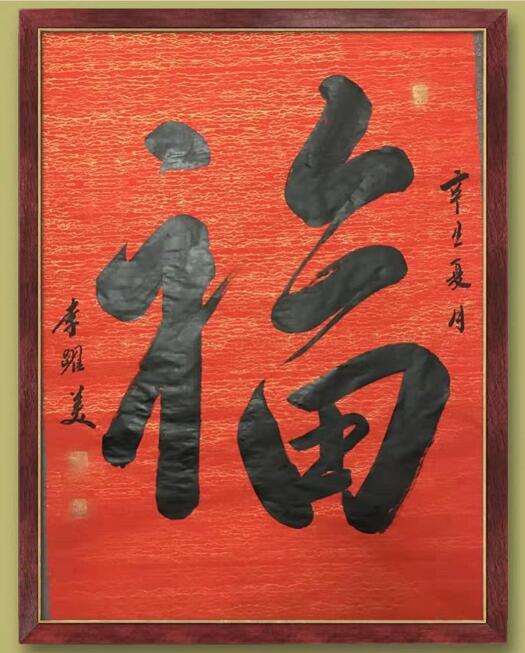 辛丑夏月
福
李躍美